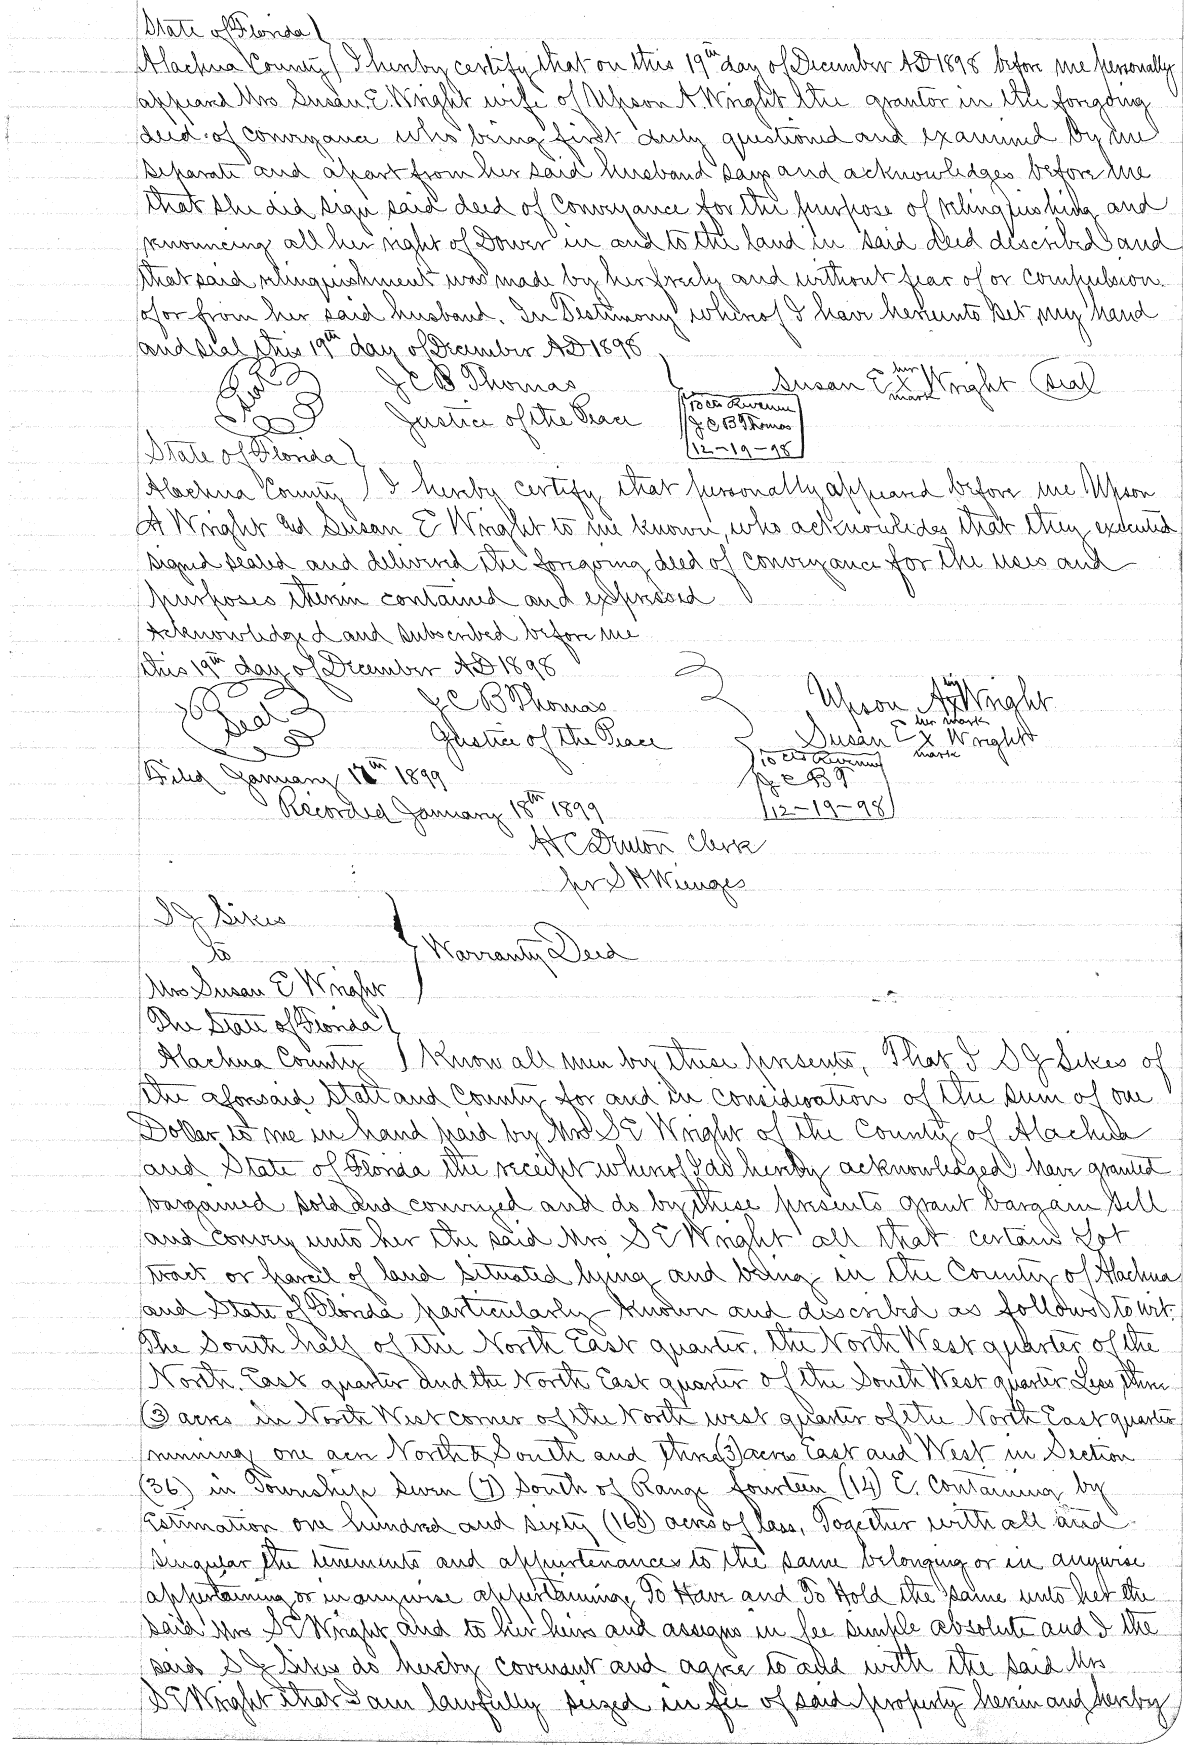 State of Florida }
Alachua County } I hereby certify that on this 19th day of December AD 1898 before me personally
appeard Mrs Susan E. Wright wife of Upson A. Wright the grantor in the forgoing
deed of conveyance who being first duly questioned and examined by me
separate and apart from her said husband says and acknowledges before me
that she did sign said deed of conveyance for the purpose of relinquishing and
renouncing all her right of Dower in and to the land in said deed described and
that said relinquishment was made by her freely and without fear of or compulsion
of or from her said husband. In Testimony whereof I have hereunto set my hand
and seal this 19th day of December AD 1898
Seal J C B Thomas } Susan E her X mark Wright (Seal)
Justice of the Peace 10 cts Revenue
J C B Thomas
12-19-98
State of Florida }
Alachua County } I hereby certify that personally appeared before me Upson
A Wright and Susan E Wright to me known, who acknowledes that they executed
signed sealed and delivered the forgoing deed of conveyance for the uses and
purposes therein contained and expressed
Acknowledged and subscribed before me
this 19th day of December AD 1898
Seal J C B Thomas Upson A Wright
Justice of the Peace Susan E her mark X mark Wright
Filed January 17th 1899 10 cts Revenue
J C B T
Recorded January 18th 1899 12-19-98
H C Denton Clerk
pr S H Wienges
S J Sikes
to } Warranty Deed
Mrs Susan E Wright
The State of Florida }
Alachua County } Know all men by these presents, That I S J Sikes of
the aforsaid State and County for and in consideration of the sum of one
Dollar to me in hand paid by Mrs S E Wright of the County of Alachua
and State of Florida the receipt whereof I do hereby acknowledged have granted
bargained sold and conveyed and do by these presents grant bargain sell
and convey unto her the said Mrs S E Wright all that certain Lot
tract or parcel of land situated lying and being in the County of Alachua
and State of Florida particularly known and described as follows to wit.
The South half of the North East quarter. the North West quarter of the
North. East quarter and the North East quarter of the South West quarter Less three
(3) acres in North West corner of the North west quarter of the North East quarter
running one acre North & South and three (3) acres East and West in Section
(36) in Township seven (7) South of Range fourteen (14) E. containing by
Estimation one hundred and sixty (160) acres of less, Together with all and
singular the tenements and appurtenances to the same belonging or in anywise
appertaining or in anywise appertaining, To Have and To Hold the same unto her the
said Mrs S E Wright and to her heirs and assigns in fee simple absolute and I the
said S J Sikes do hereby covenant and agree to and with the said Mrs
S E Wright that I am lawfully seized in fee of said property herein and hereby